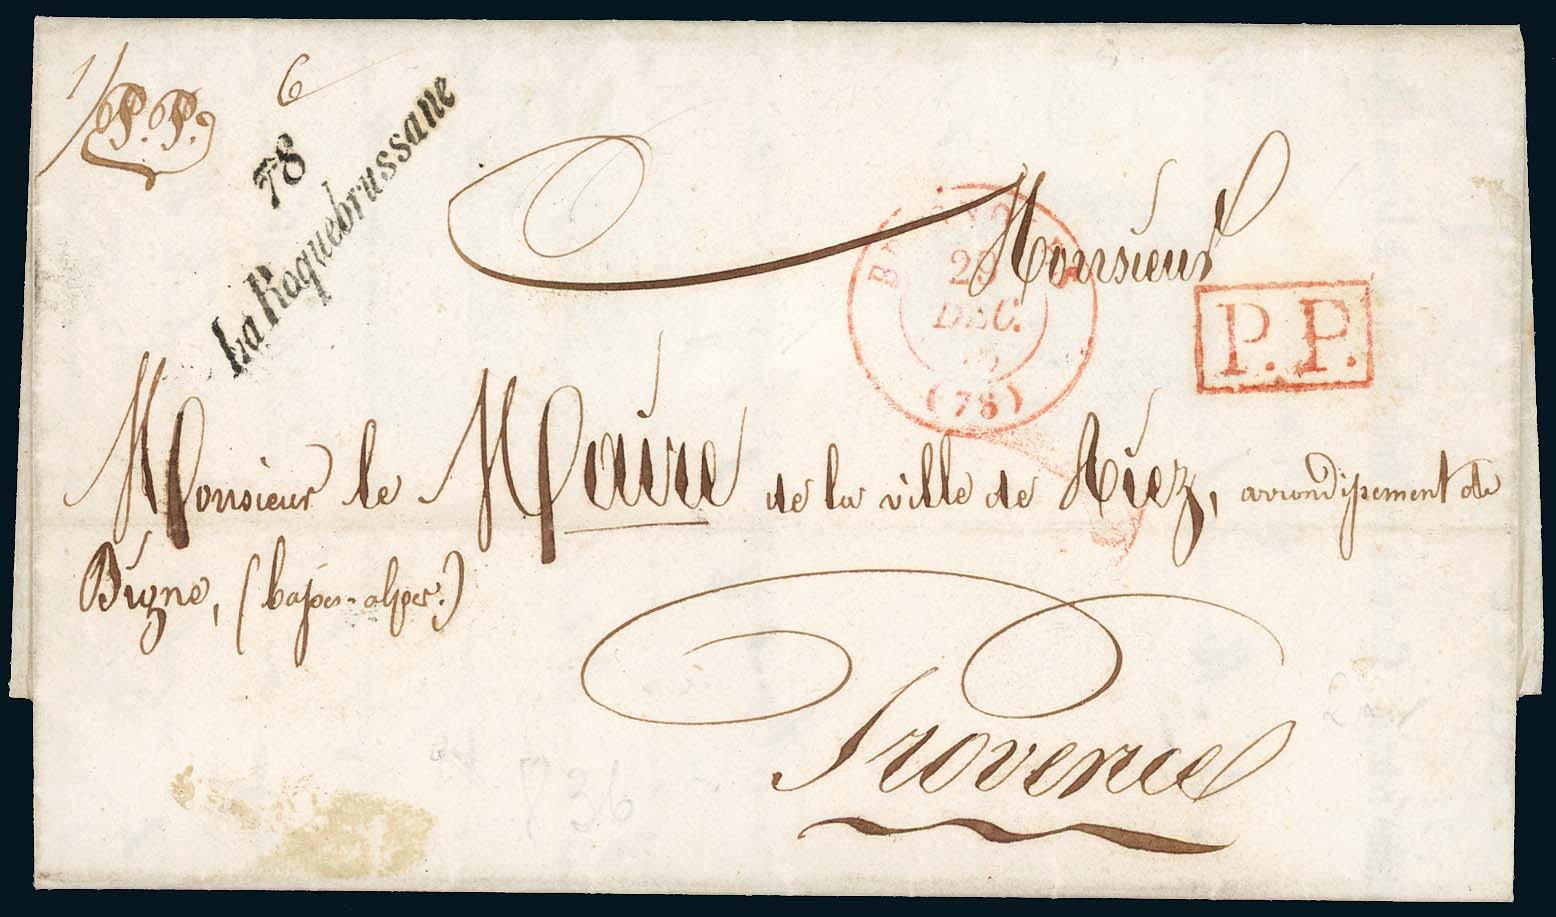 1/
P.P.
6
78
La Roquebrussane
29
DEC.
(78)
P.P.
Monsieur
Monsieur le Maire de la ville de Riez, arrondissement de
Digne, (basses-alpes.)
Provence